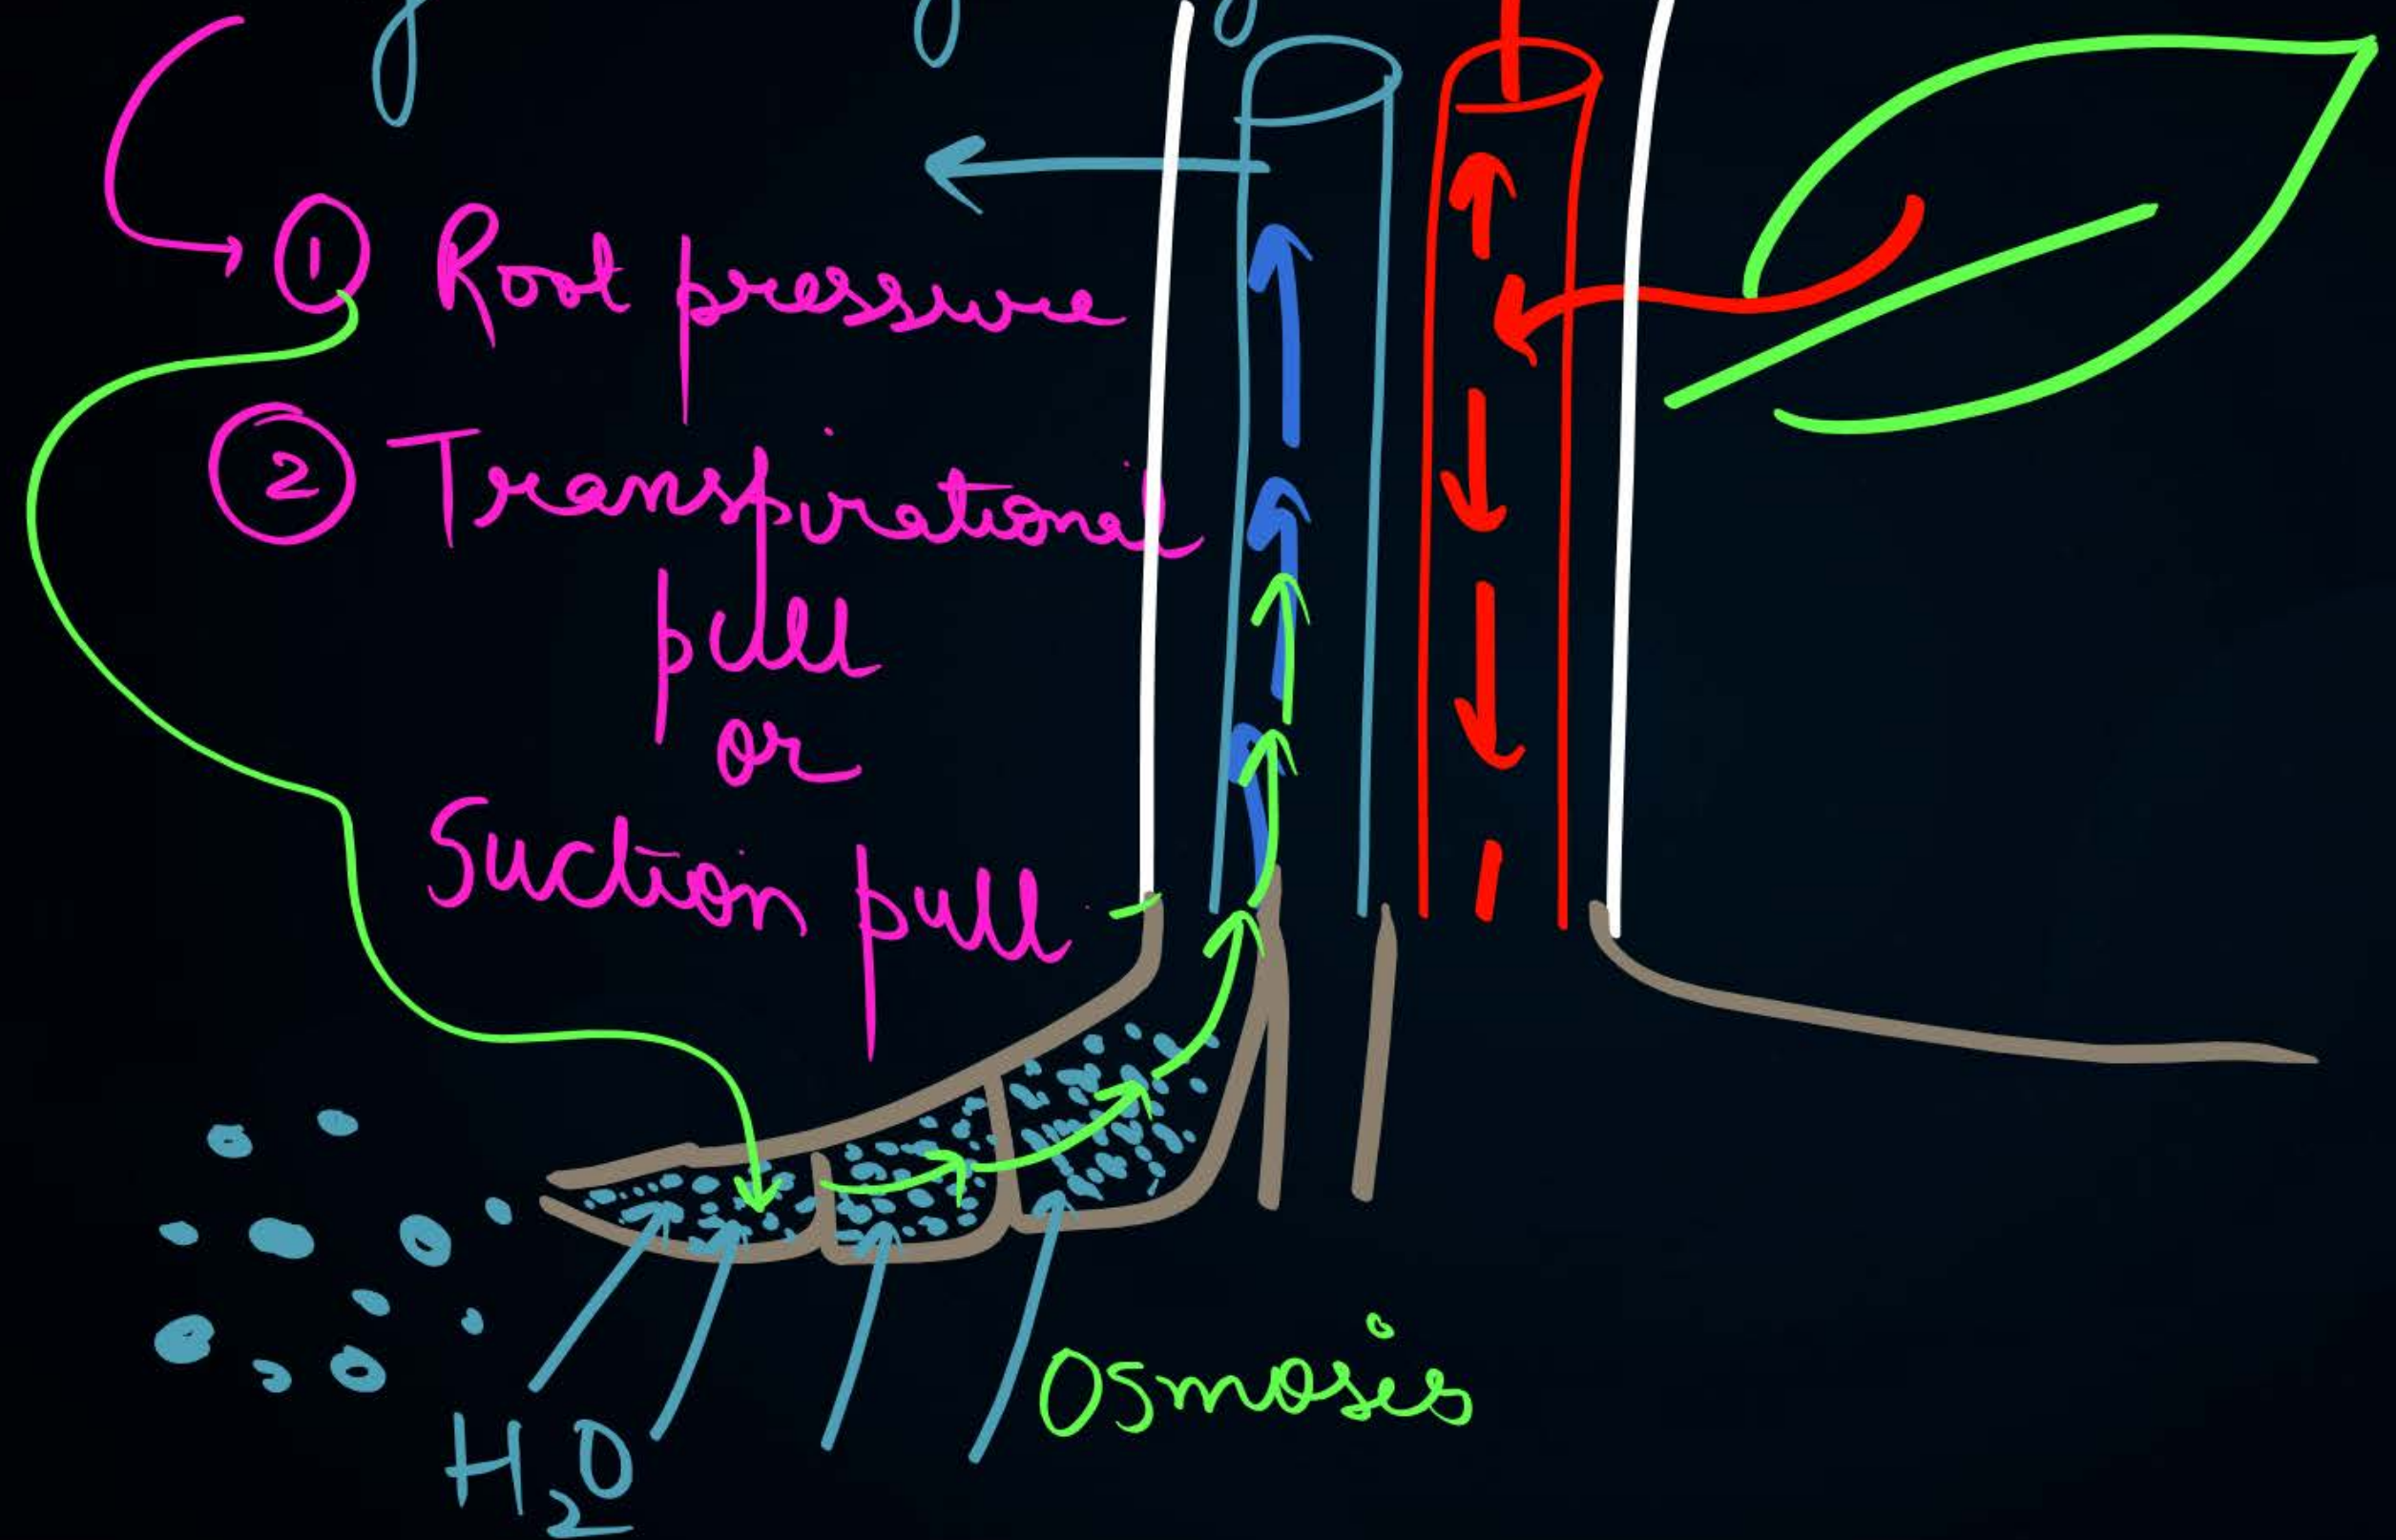 ① Root pressure
② Transpirational
pull
or
Suction pull
Osmosis
H₂O